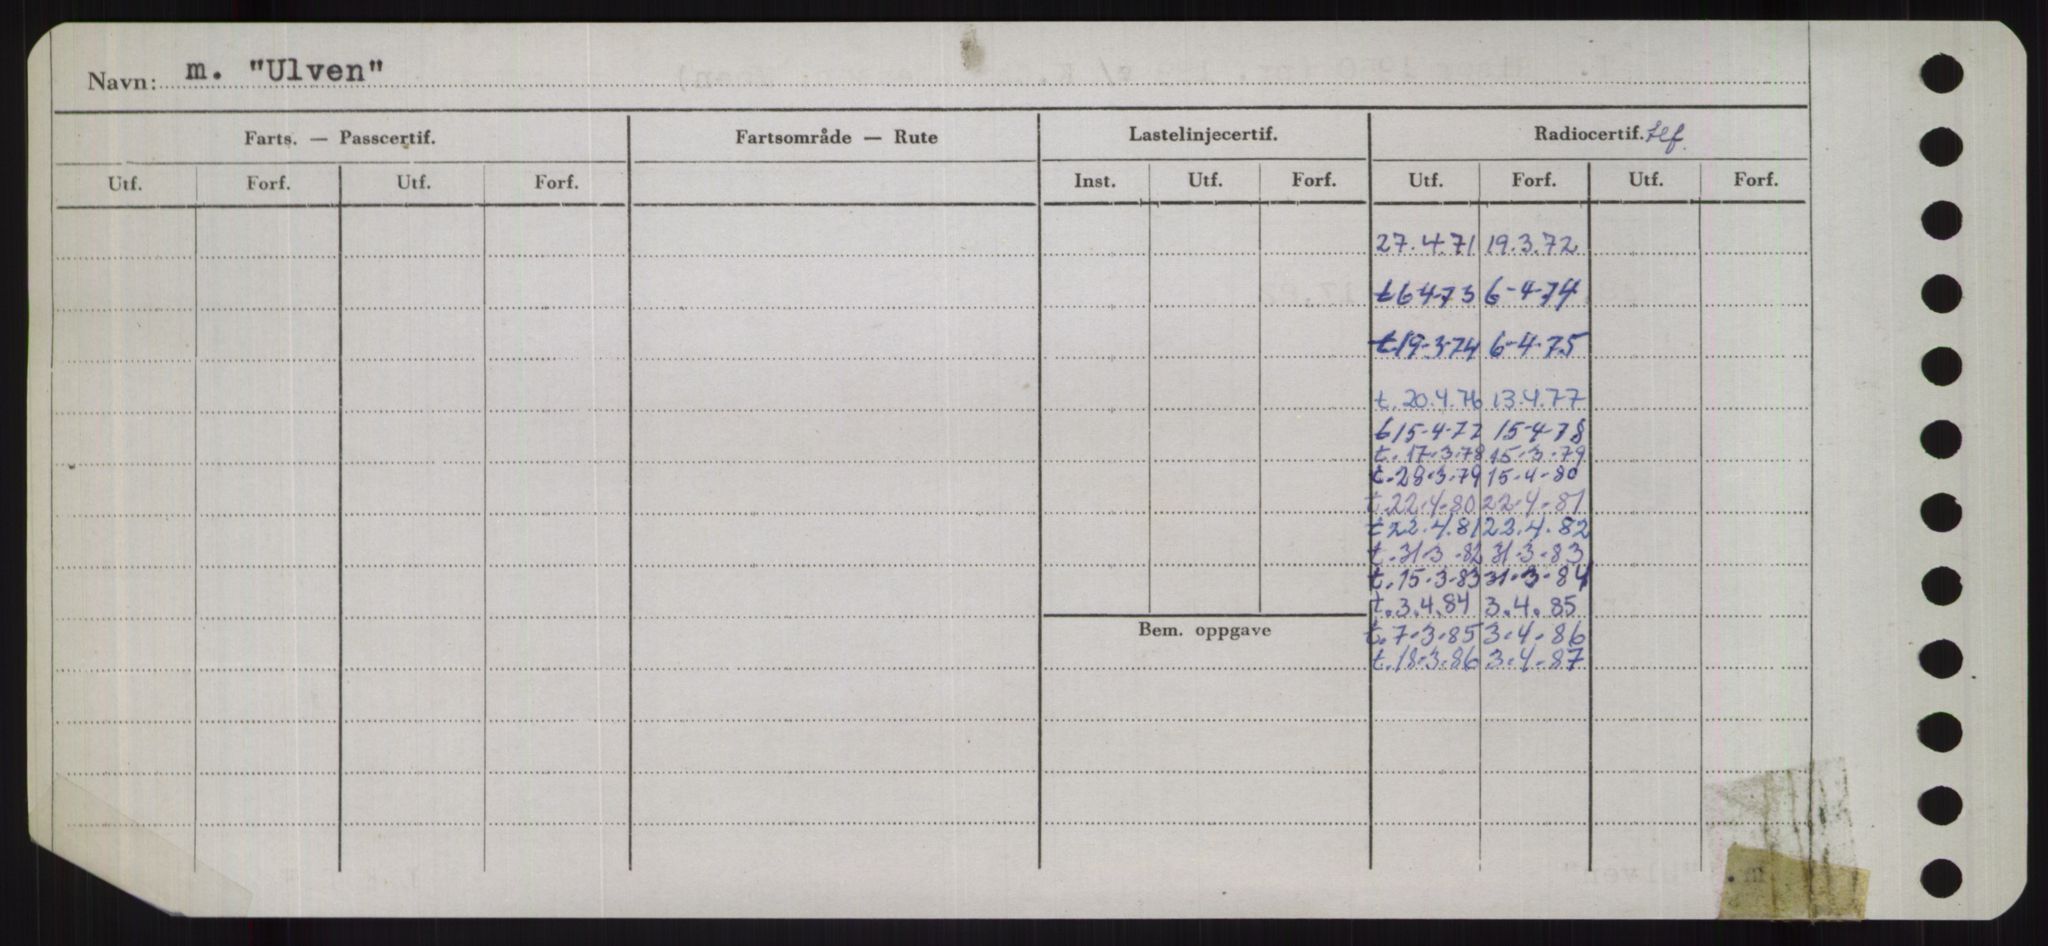 Navn: m. "Ulven"
Farts. — Passcertif. Fartsområde — Rute Lastelinjecertif. Radiocertif. tlf.
Utf. Forf. Utf. Forf. Inst. Utf. Forf. Utf. Forf. Utf. Forf.
27.4.71 19.3.72
t 6-4-73 6-4-74
t.19-3-74 6-4-75
t. 20.4.76 13.4.77
t 15-4-77 15-4-78
t. 17.3.78 15.3.79
t.28.3.79 15-4-80
t.22.4.80 22.4.81
t 22.4.81 22.4.82
t.31.3.82 31.3.83
t.15.3.83 31.3.84
t.3.4.84 3.4.85
Bem. oppgave
t.7.3.85 3.4.86
t.18.3.86 3.4.87